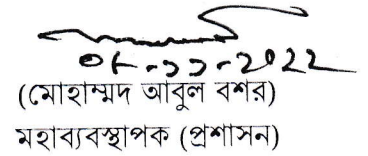 ০৮-১১-২০২২
(মোহাম্মদ আবুল বশর)
মহাব্যবস্থাপক (প্রশাসন)